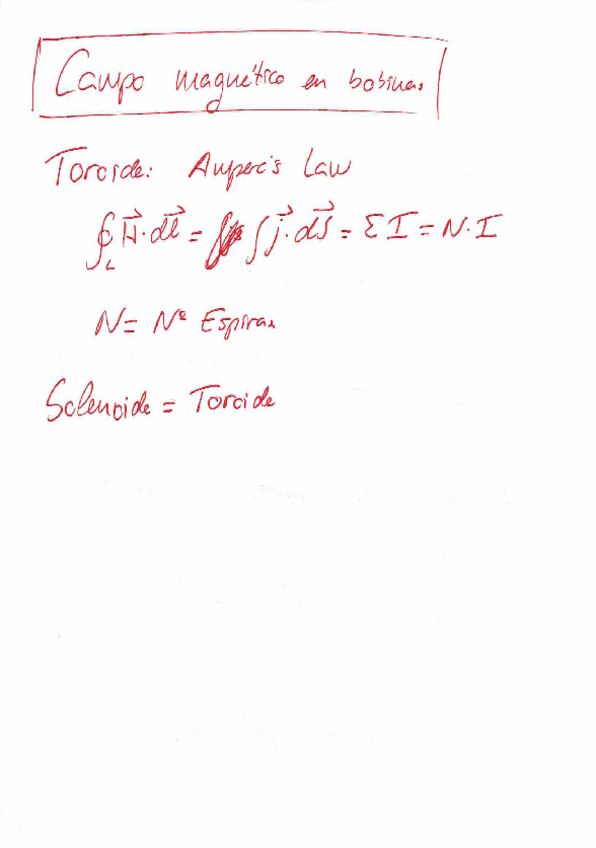 Campo magnético en bobinas
Toroide: Ampere's Law
∮_L H⃗·dl⃗ = ∫ j⃗·dS⃗ = Σ I = N·I
N = Nº Espiras
Solenoide = Toroide